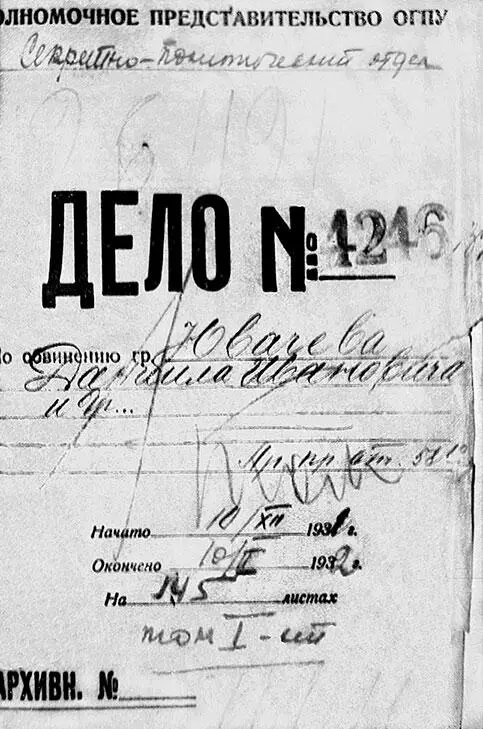 ОЛНОМОЧНОЕ ПРЕДСТАВИТЕЛЬСТВО ОГПУ
Секретно-политический отдел
ДЕЛО № 4246
По обвинению гр. Ювачева
Даниила Ивановича
и др...
Ар. пр. ст. 58¹⁰
Начато 10/XII 1931 г.
Окончено 10/II 1932 г.
На 145 листах
том I-ый
АРХИВН. №